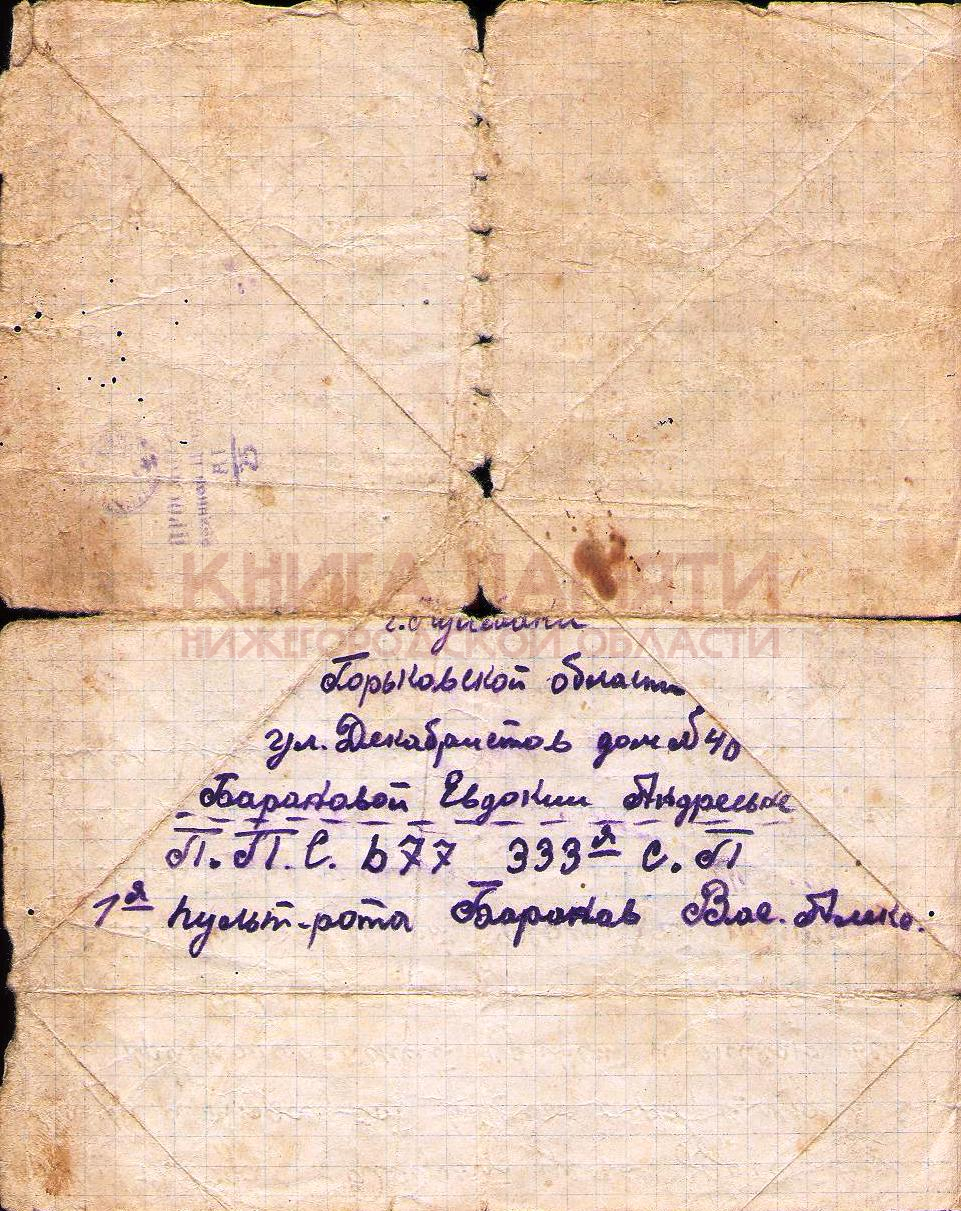 КНИГА ПАМЯТИ
НИЖЕГОРОДСКОЙ ОБЛАСТИ
Горьковской области
ул. Декабристов дом № 40
Барановой Евдокии Андреевне
П.П.С. 677 333я С.П
1я пульт-рота Баранов Вас. Алекс.